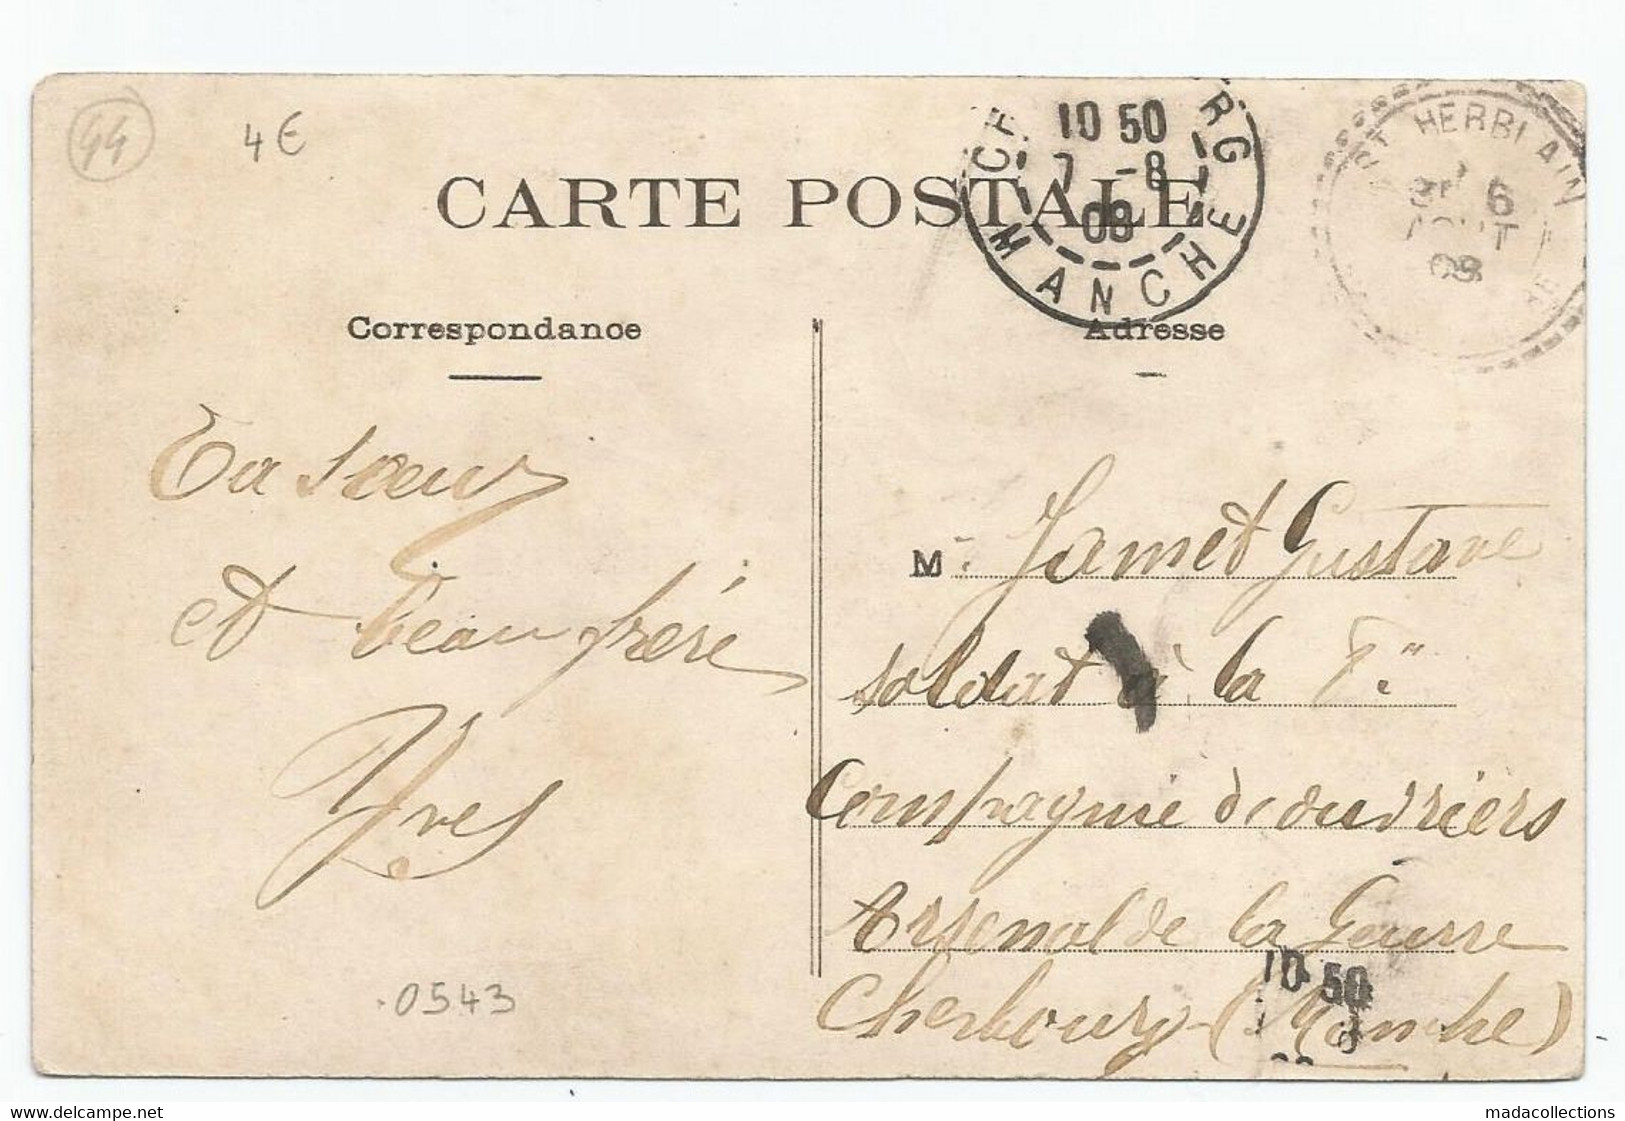 44
4€
CARTE POSTALE
10 50
7 -8
08
MANCHE
ST HERBLAIN
6
AOUT
08
Correspondance
Adresse
Ta sœur
et beau frère
Yves
M. Jamet Gustave
soldat à la
Compagnie d'ouvriers
Arsenal de la Guerre
Cherbourg (Manche)
10 50
.0543
delcampe.net
madacollections